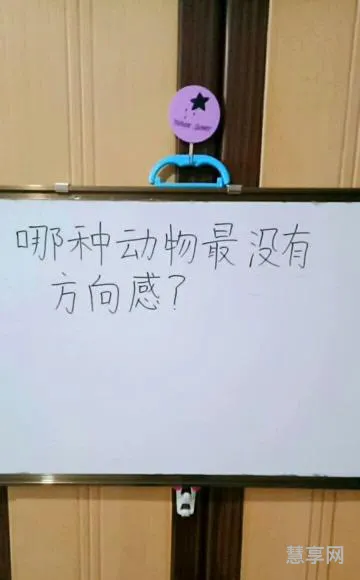 哪种动物最没有
方向感?
慧享网